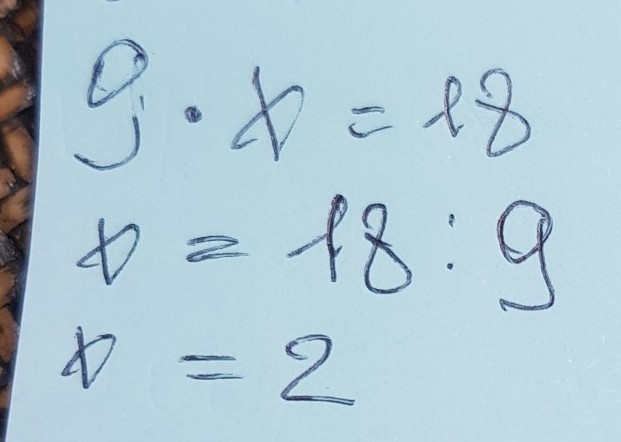 9 · x = 18
x = 18 : 9
x = 2